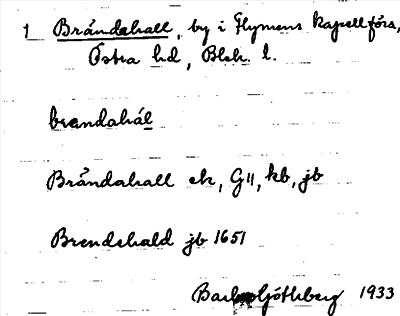 1 Brändahall, by i Flymens kapellförs,
Östra hd, Blek. l.
brandahál
Brändahall ek, GII, kb, jb
Brendehald jb 1651
Göthberg 1933